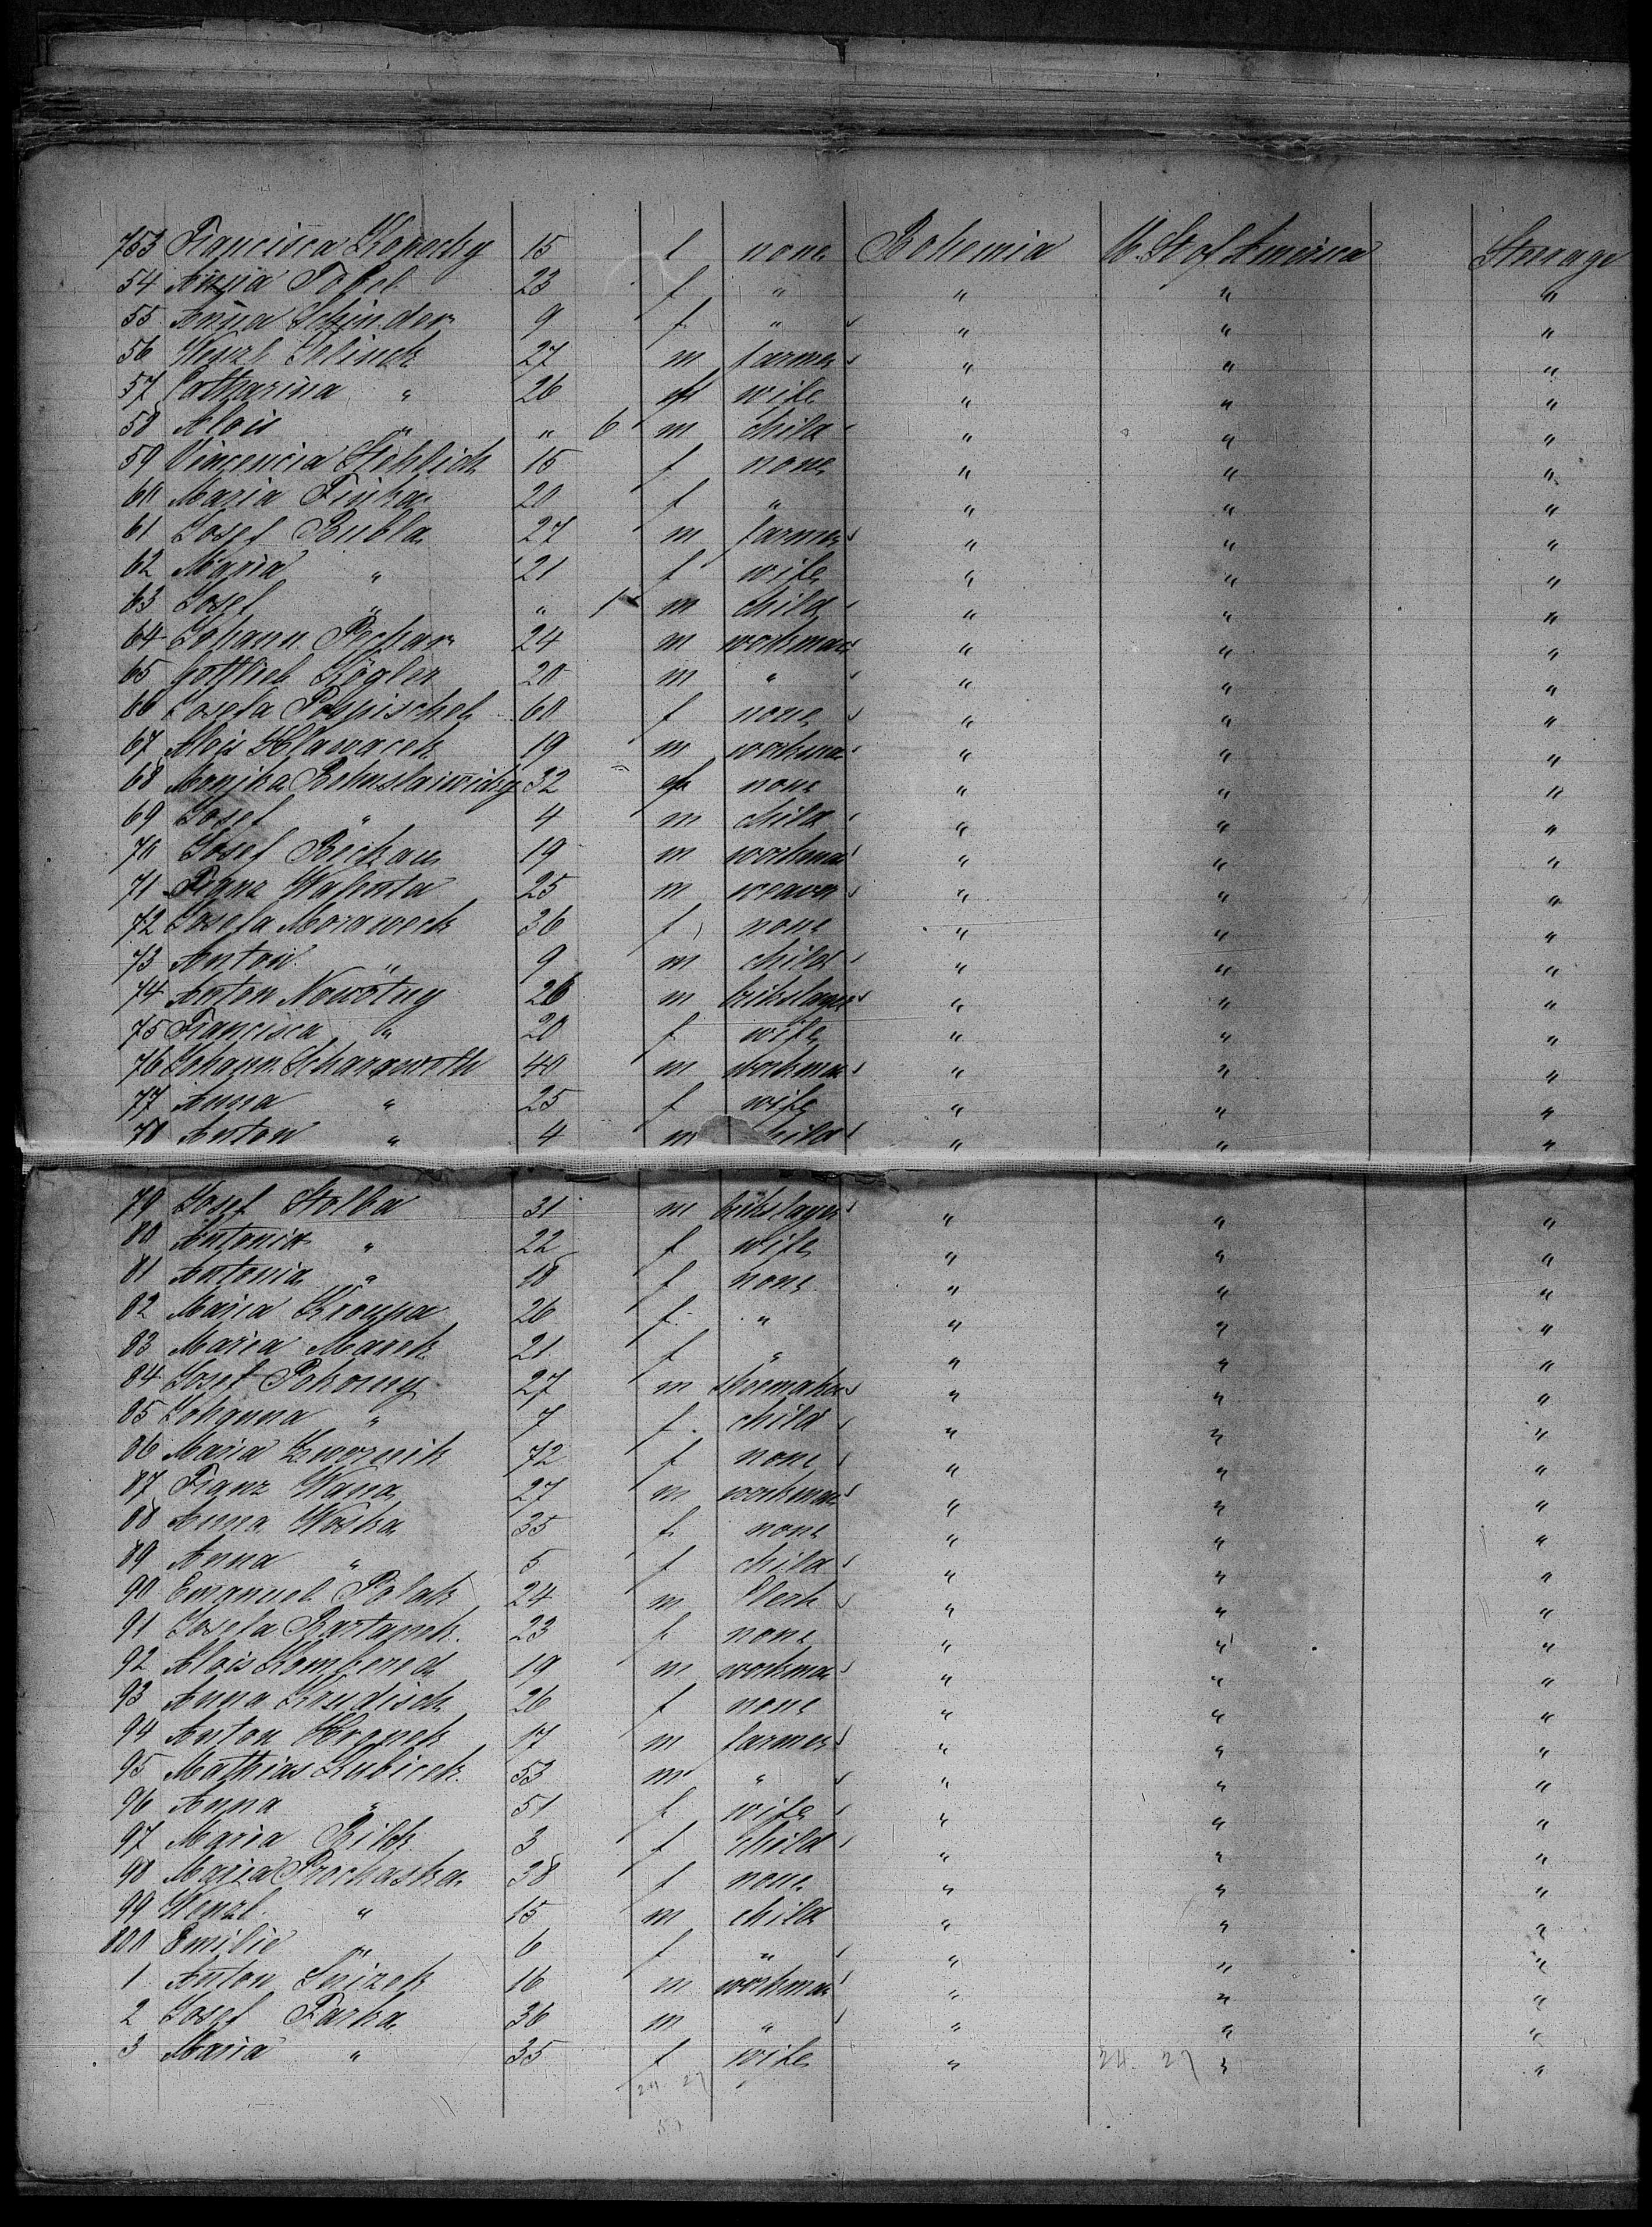 753 Francisca Konecky 15 f none Bohemia U. St of America Steerage
54 Anna 23 f " " " "
55 Anna Schinder 9 f " " " "
56 Wenzl Jelinek 27 m farmer " " "
57 Catharina " 26 f wife " " "
58 Alois " " 6 m child " " "
59 Vincencia 15 f none " " "
60 Maria 20 f " " " "
61 Josef Bubla 27 m farmer " " "
62 Maria " 21 f wife " " "
63 Josef " " 1 m child " " "
64 Johann Pechar 24 m workman " " "
65 Gottlieb Kögler 20 m " " " "
66 Josefa Pospischel 60 f none " " "
67 Alois Hlawacek 19 m workman " " "
68 32 f none " " "
69 Josef " 4 m child " " "
70 Josef 19 m workman " " "
71 Franz 25 m weaver " " "
72 Josefa Moraweck 36 f none " " "
73 Anton " 9 m child " " "
74 Anton Nowotny 26 m brikslayer " " "
75 Francisca " 20 f wife " " "
76 Johann 40 m workman " " "
77 Anna " 25 f wife " " "
78 Anton " 4 m child " " "
79 Josef Stolba 31 m brikslayer " " "
80 Antonia " 22 f wife " " "
81 Antonia " 18 f none " " "
82 Maria Kroupa 26 f " " " "
83 Maria Marek 21 f " " " "
84 Josef Pokorny 27 m shoemaker " " "
85 Johanna " 7 f child " " "
86 Maria Dwornik 72 f none " " "
87 Franz Wana 27 m workman " " "
88 Anna Woska 35 f none " " "
89 Anna " 5 f child " " "
90 Emanuel Polak 24 m Clerk " " "
91 Josefa Bartanek 23 f none " " "
92 Alois 19 m workman " " "
93 Anna 26 f none " " "
94 Anton 17 m farmer " " "
95 Mathias Kubicek 53 m " " " "
96 Anna " 51 f wife " " "
97 Maria Bilek 3 f child " " "
98 Maria Prochaska 38 f none " " "
99 Wenzl " 15 m child " " "
800 Emilie " 6 f " " " "
1 Anton 16 m workman " " "
2 Josef Farka 36 m " " " "
3 Maria " 35 f wife " " "
24 27 24 27
51